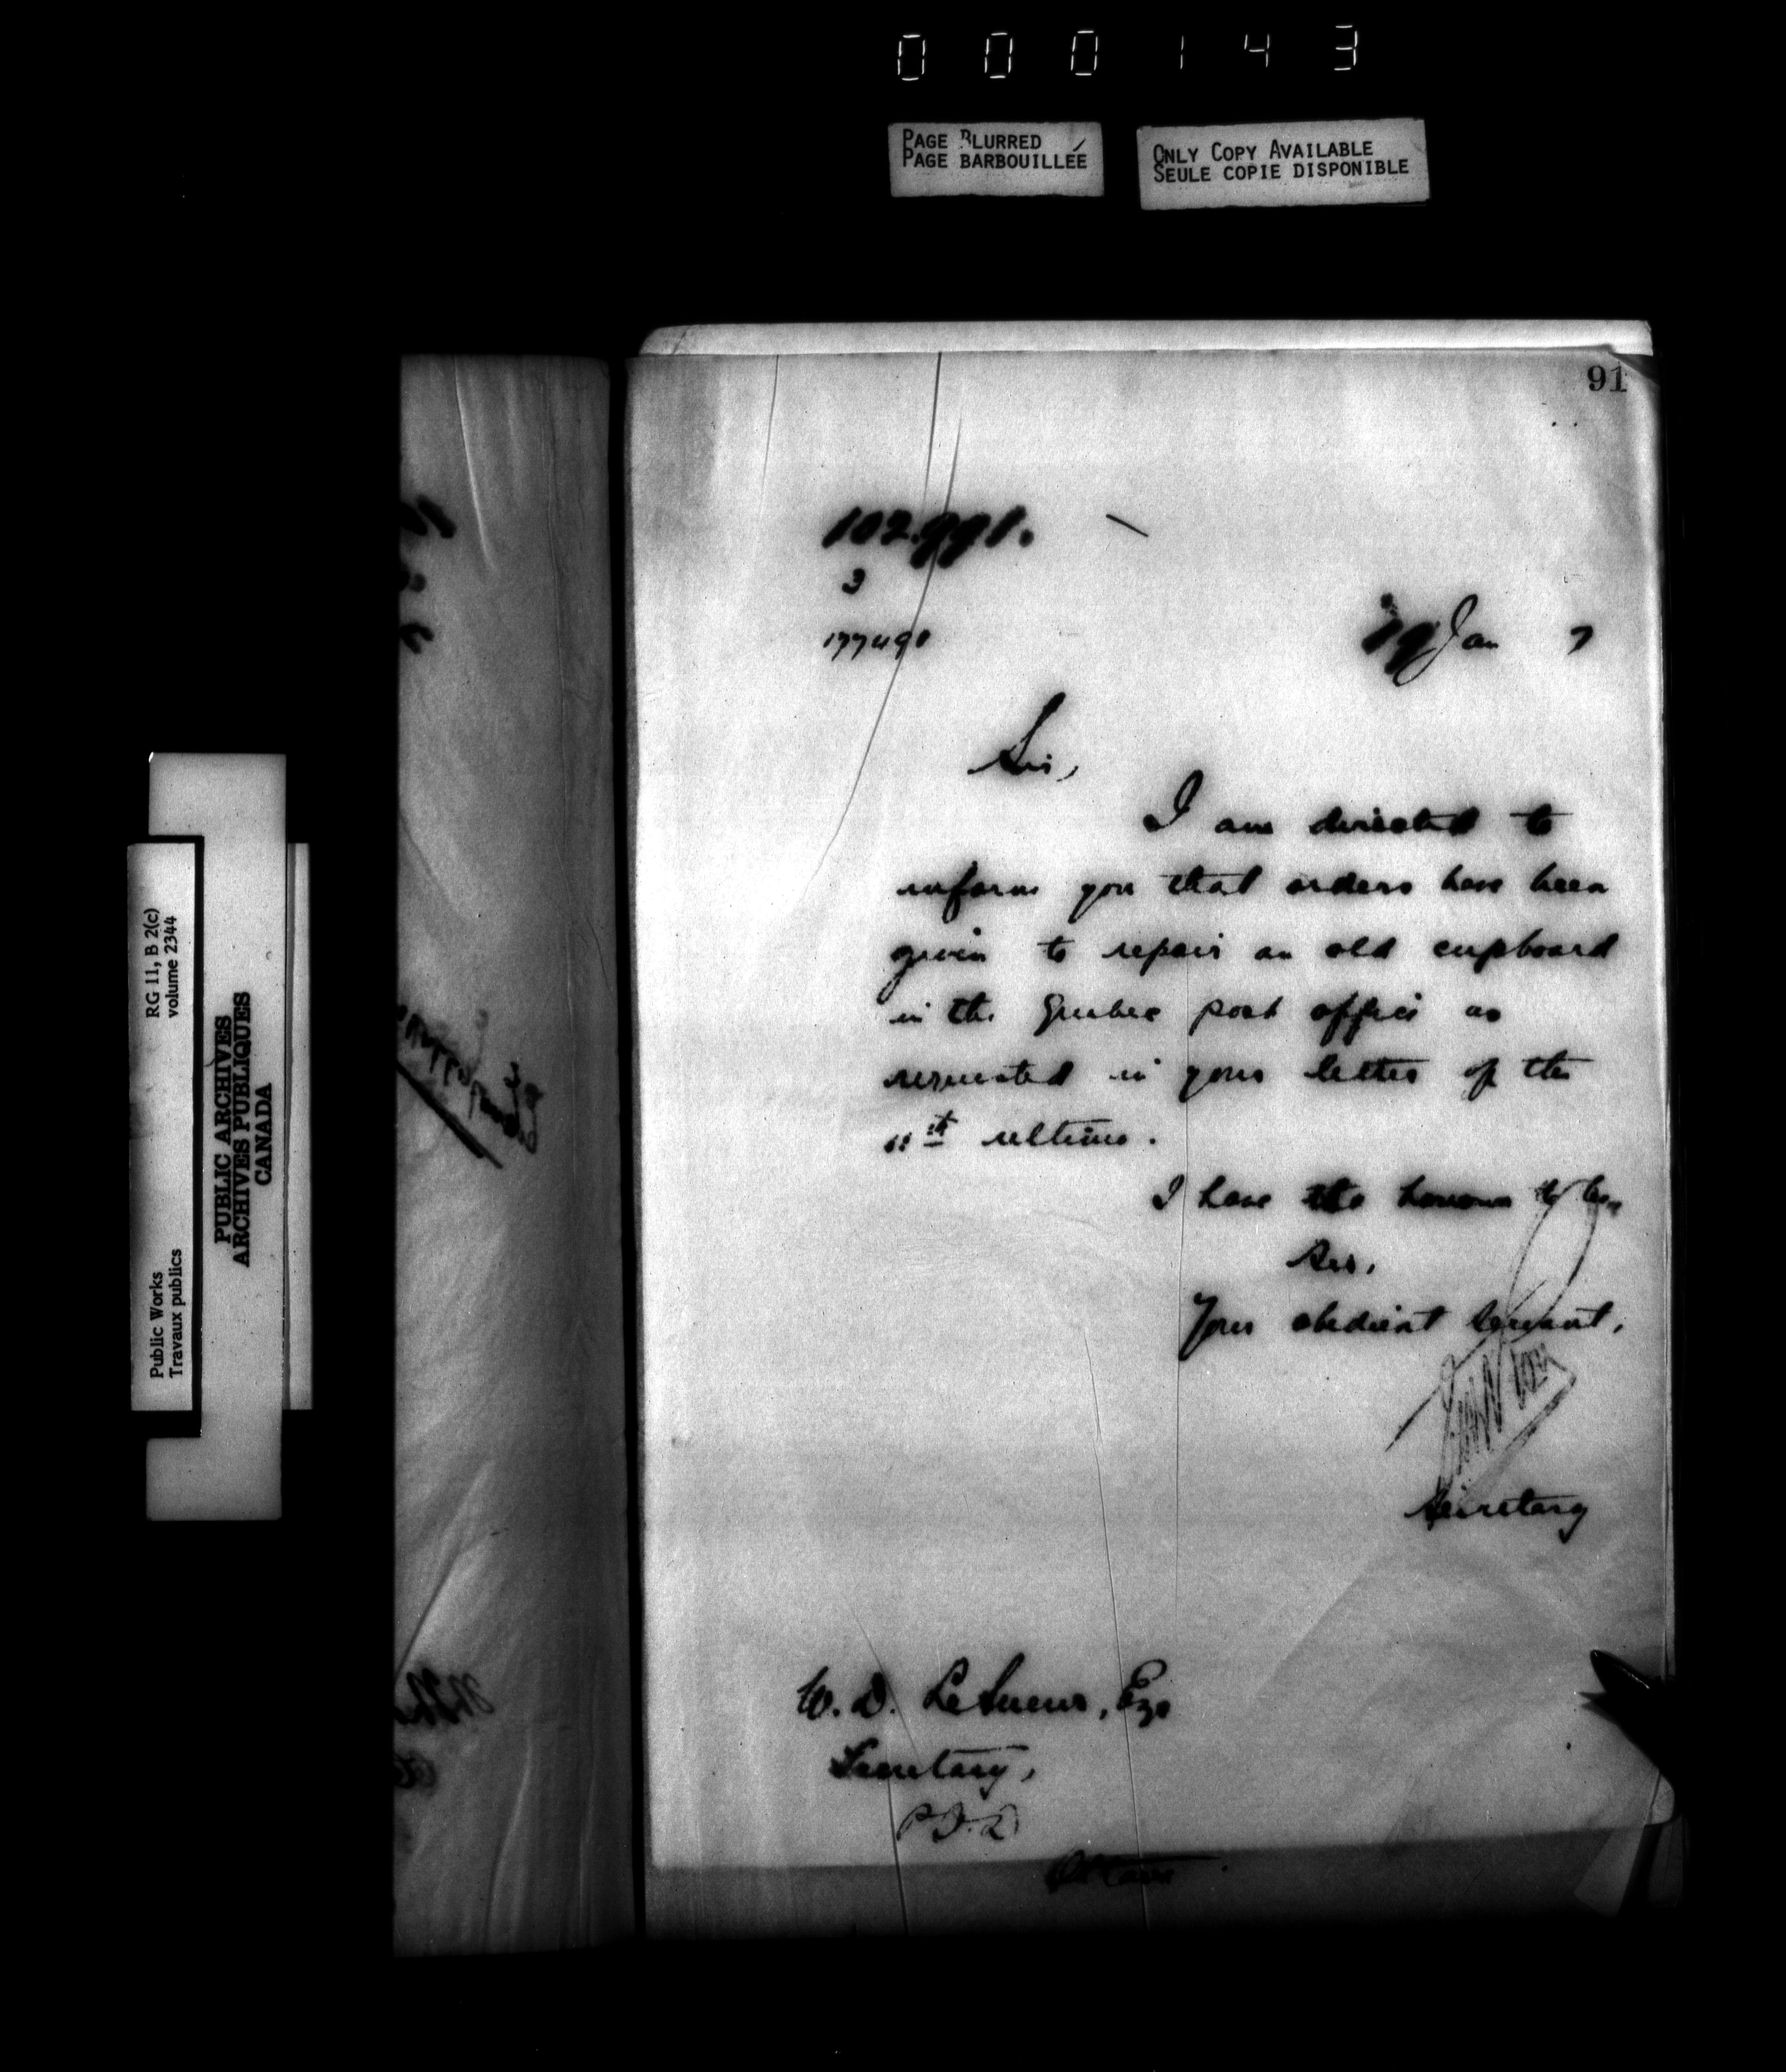 000143
PAGE BLURRED
PAGE BARBOUILLÉE
ONLY COPY AVAILABLE
SEULE COPIE DISPONIBLE
91
102.991.
3
177490
19 Jan 7
Sir,
I am directed to
inform you that orders have been
given to repair an old cupboard
in the Quebec post office as
requested in your letter of the
11th ultimo.
I have the honour to be,
Sir,
Your obedient servant,
Secretary
W. D. LeSueur, Esq
Secretary,
P.O.D
Ottawa.
RG 11, B 2(c)
volume 2344
Public Works
Travaux publics
PUBLIC ARCHIVES
ARCHIVES PUBLIQUES
CANADA